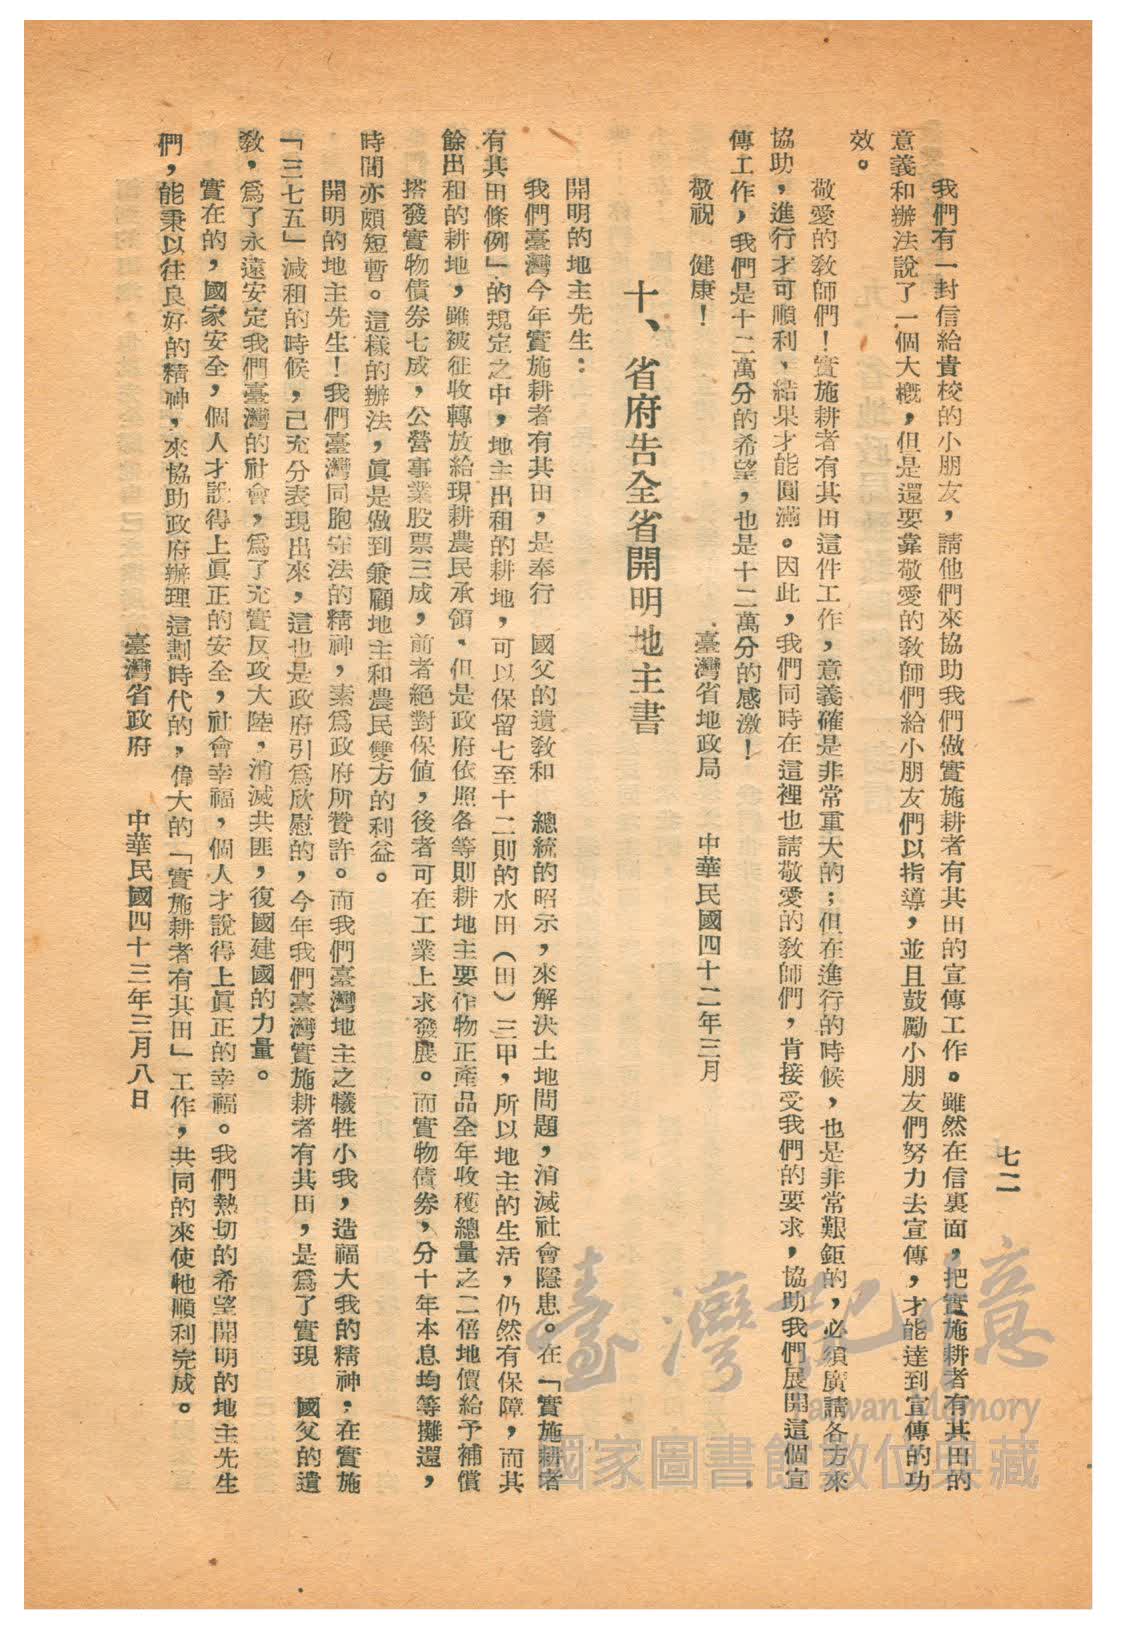 七二
我們有一封信給貴校的小朋友，請他們來協助我們做實施耕者有其田的宣傳工作。雖然在信裏面，把實施耕者有其田的
意義和辦法說了一個大概，但是還要靠敬愛的教師們給小朋友們以指導，並且鼓勵小朋友們努力去宣傳，才能達到宣傳的功
效。
敬愛的教師們！實施耕者有其田這件工作，意義確是非常重大的；但在進行的時候，也是非常艱鉅的，必須廣請各方來
協助，進行才可順利，結果才能圓滿。因此，我們同時在這裡也請敬愛的教師們，肯接受我們的要求，協助我們展開這個宣
傳工作，我們是十二萬分的希望，也是十二萬分的感激！
敬祝　健康！　臺灣省地政局　中華民國四十二年三月
十、省府告全省開明地主書
開明的地主先生：
我們臺灣今年實施耕者有其田，是奉行　國父的遺教和　總統的昭示，來解決土地問題，消滅社會隱患。在「實施耕者
有其田條例」的規定之中，地主出租的耕地，可以保留七至十二則的水田（田）三甲，所以地主的生活，仍然有保障，而其
餘出租的耕地，雖被征收轉放給現耕農民承領，但是政府依照各等則耕地主要作物正產品全年收穫總量之二倍地價給予補償
搭發實物債券七成，公營事業股票三成，前者絕對保值，後者可在工業上求發展。而實物債券，分十年本息均等攤還，
時間亦頗短暫。這樣的辦法，眞是做到兼顧地主和農民雙方的利益。
開明的地主先生！我們臺灣同胞守法的精神，素爲政府所贊許。而我們臺灣地主之犧牲小我，造福大我的精神，在實施
「三七五」減租的時候，已充分表現出來，這也是政府引爲欣慰的，今年我們臺灣實施耕者有其田，是爲了實現　國父的遺
教，爲了永遠安定我們臺灣的社會，爲了充實反攻大陸，消滅共匪，復國建國的力量。
實在的，國家安全，個人才說得上眞正的安全，社會幸福，個人才說得上眞正的幸福。我們熱切的希望開明的地主先生
們，能秉以往良好的精神，來協助政府辦理這劃時代的，偉大的「實施耕者有其田」工作，共同的來使牠順利完成。
臺灣省政府　中華民國四十三年三月八日
臺灣記憶
Taiwan Memory
國家圖書館數位典藏